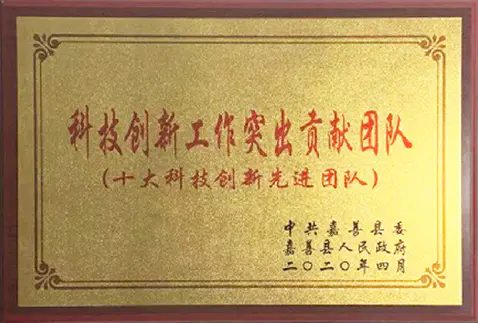 科技创新工作突出贡献团队
(十大科技创新先进团队)
中共嘉善县委
嘉善县人民政府
二〇二〇年四月